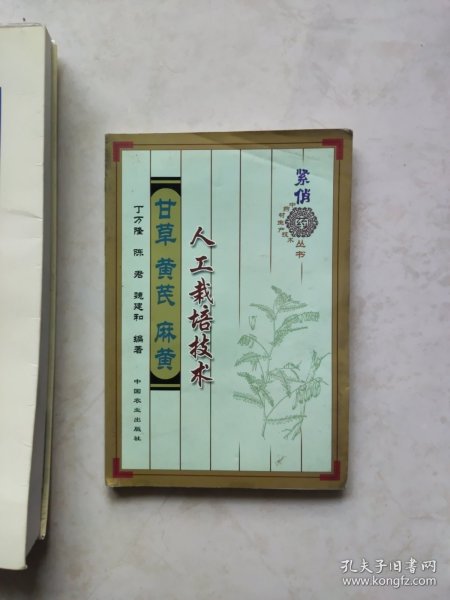 紧俏
中药材生产技术
丛书
人工栽培技术
甘草 黄芪 麻黄
丁万隆 陈君 魏建和 编著
中国农业出版社
孔夫子旧书网
www.kongfz.com